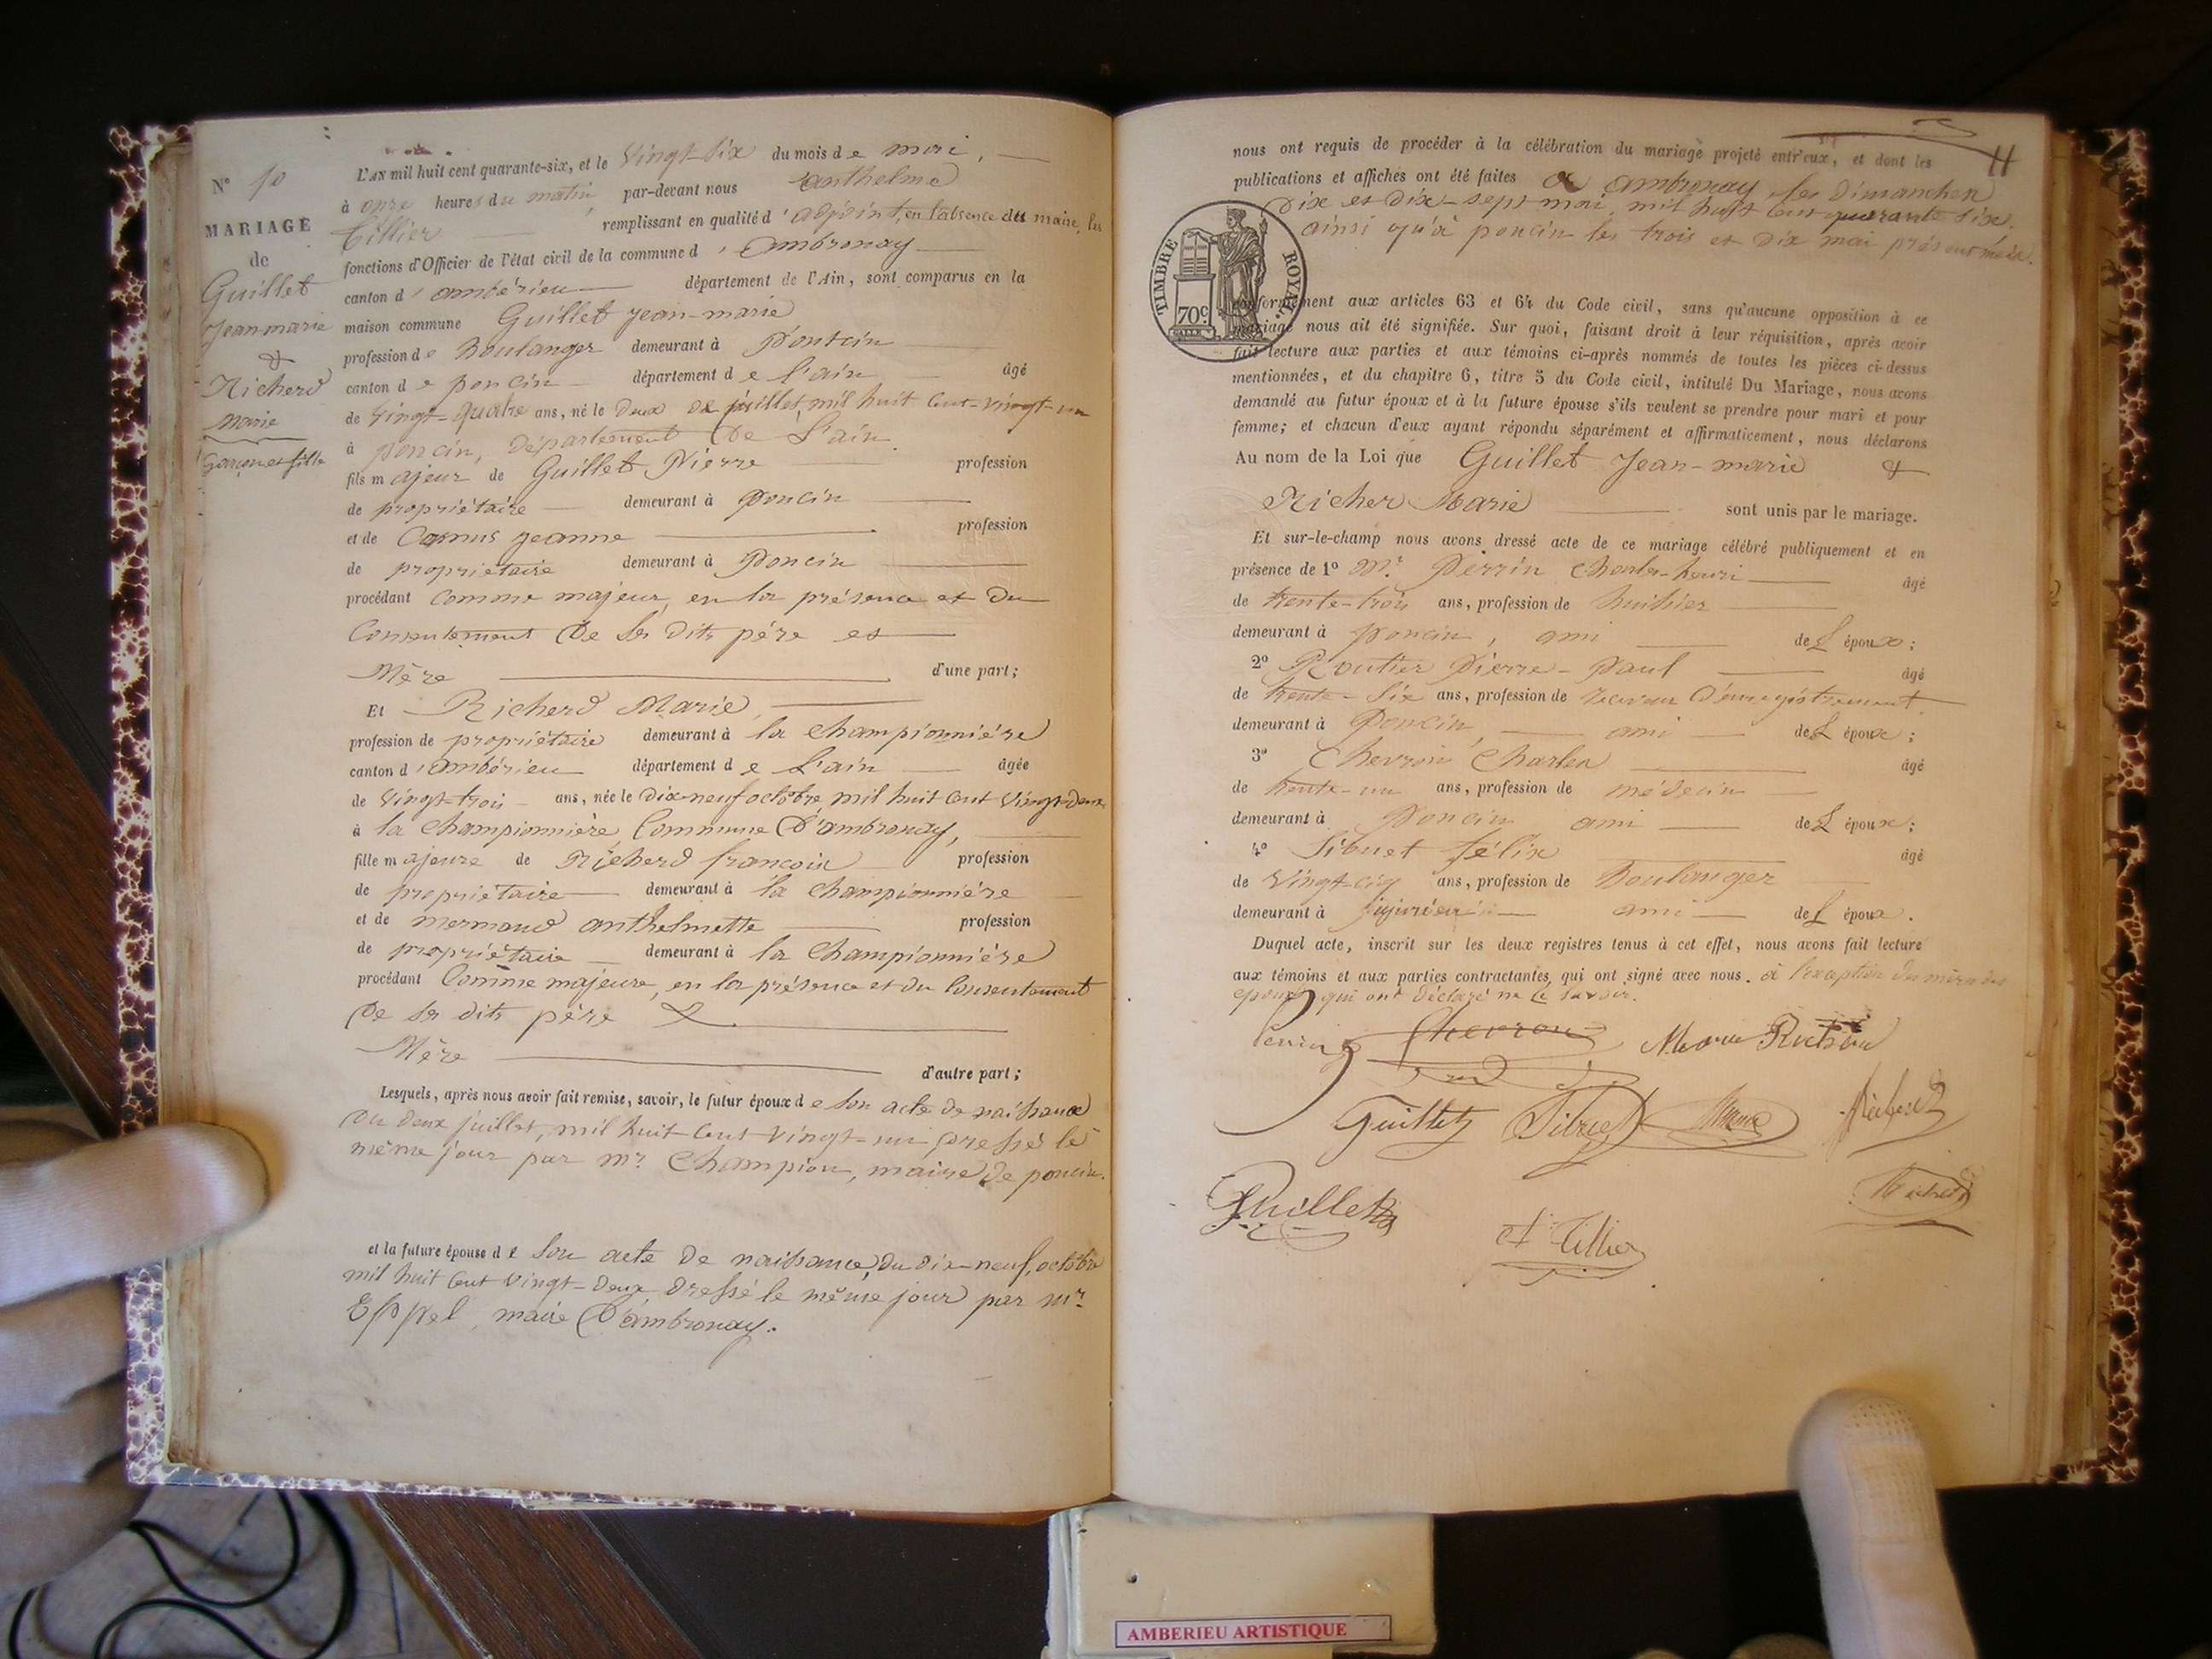 N° 10
MARIAGE
de
Guillet
Jean-marie
&
Richerd
Marie
Garçon et fille
L'AN mil huit cent quarante-six, et le vingt-six du mois de mai,
à onze heures du matin, par-devant nous Anthelme
Tillier remplissant en qualité d'adjoint, en l'absence du maire, les
fonctions d'Officier de l'état civil de la commune d'ambronay
canton d'ambérieu département de l'Ain, sont comparus en la
maison commune Guillet Jean-marie
profession de Boulanger demeurant à Poncin
canton de poncin département de l'ain âgé
de vingt-quatre ans, né le deux de juillet mil huit cent-vingt-un
à poncin, département de l'ain
fils majeur de Guillet Pierre profession
de propriétaire demeurant à Poncin
et de Cornus jeanne profession
de propriétaire demeurant à Poncin
procédant comme majeur, en la présence et du
Consentement de ses dits père et
Mère d'une part;
Et Richerd Marie,
profession de propriétaire demeurant à la championnière
canton d'ambérieu département de l'ain âgée
de vingt-trois ans, née le dix-neuf octobre mil huit cent vingt-deux
à la championnière, Commune d'ambronay,
fille majeure de Richerd françois profession
de propriétaire demeurant à la championnière
et de mermand anthelmette profession
de propriétaire demeurant à la Championnière
procédant comme majeure, en la présence et du consentement
de ses dits père &
Mère d'autre part;
Lesquels, après nous avoir fait remise, savoir, le futur époux de son acte de naissance
du deux juillet, mil huit cent vingt-un, dressé le
même jour par mr. Champion, maire de poncin.
et la future épouse de son acte de naissance, du dix-neuf, octobre
mil huit cent vingt-deux, dressé le même jour par mr.
Eppel, maire d'ambronay.
11
nous ont requis de procéder à la célébration du mariage projeté entr'eux, et dont les
publications et affiches ont été faites à ambronay les dimanches
dix et dix-sept mai, mil huit cent quarante six.
ainsi qu'à poncin les trois et dix mai présent mois.
TIMBRE ROYAL.
70c
conformément aux articles 63 et 64 du Code civil, sans qu'aucune opposition à ce
mariage nous ait été signifiée. Sur quoi, faisant droit à leur réquisition, après avoir
fait lecture aux parties et aux témoins ci-après nommés de toutes les pièces ci-dessus
mentionnées, et du chapitre 6, titre 5 du Code civil, intitulé Du Mariage, nous avons
demandé au futur époux et à la future épouse s'ils veulent se prendre pour mari et pour
femme; et chacun d'eux ayant répondu séparément et affirmativement, nous déclarons
Au nom de la Loi que Guillet Jean-marie &
Richer Marie sont unis par le mariage.
Et sur-le-champ nous avons dressé acte de ce mariage célébré publiquement et en
présence de 1° Mr. Perrin Charles-henri âgé
de trente-trois ans, profession de huissier
demeurant à poncin, ami de L'époux;
2° Routier Pierre-Paul âgé
de trente-six ans, profession de receveur d'enregistrement
demeurant à Poncin, ami de L'époux;
3° Chevron Charles âgé
de trente-un ans, profession de médecin
demeurant à Poncin ami de L'époux;
4° Sibuet félix âgé
de vingt-cinq ans, profession de Boulanger
demeurant à jujurieux ami de L'époux.
Duquel acte, inscrit sur les deux registres tenus à cet effet, nous avons fait lecture
aux témoins et aux parties contractantes, qui ont signé avec nous. à l'exception des mères des
époux qui ont déclaré ne le savoir.
Perrin Chevron Marie Richerd
Guillet Sibuet
Guillet Richerd
at Tillier
AMBERIEU ARTISTIQUE